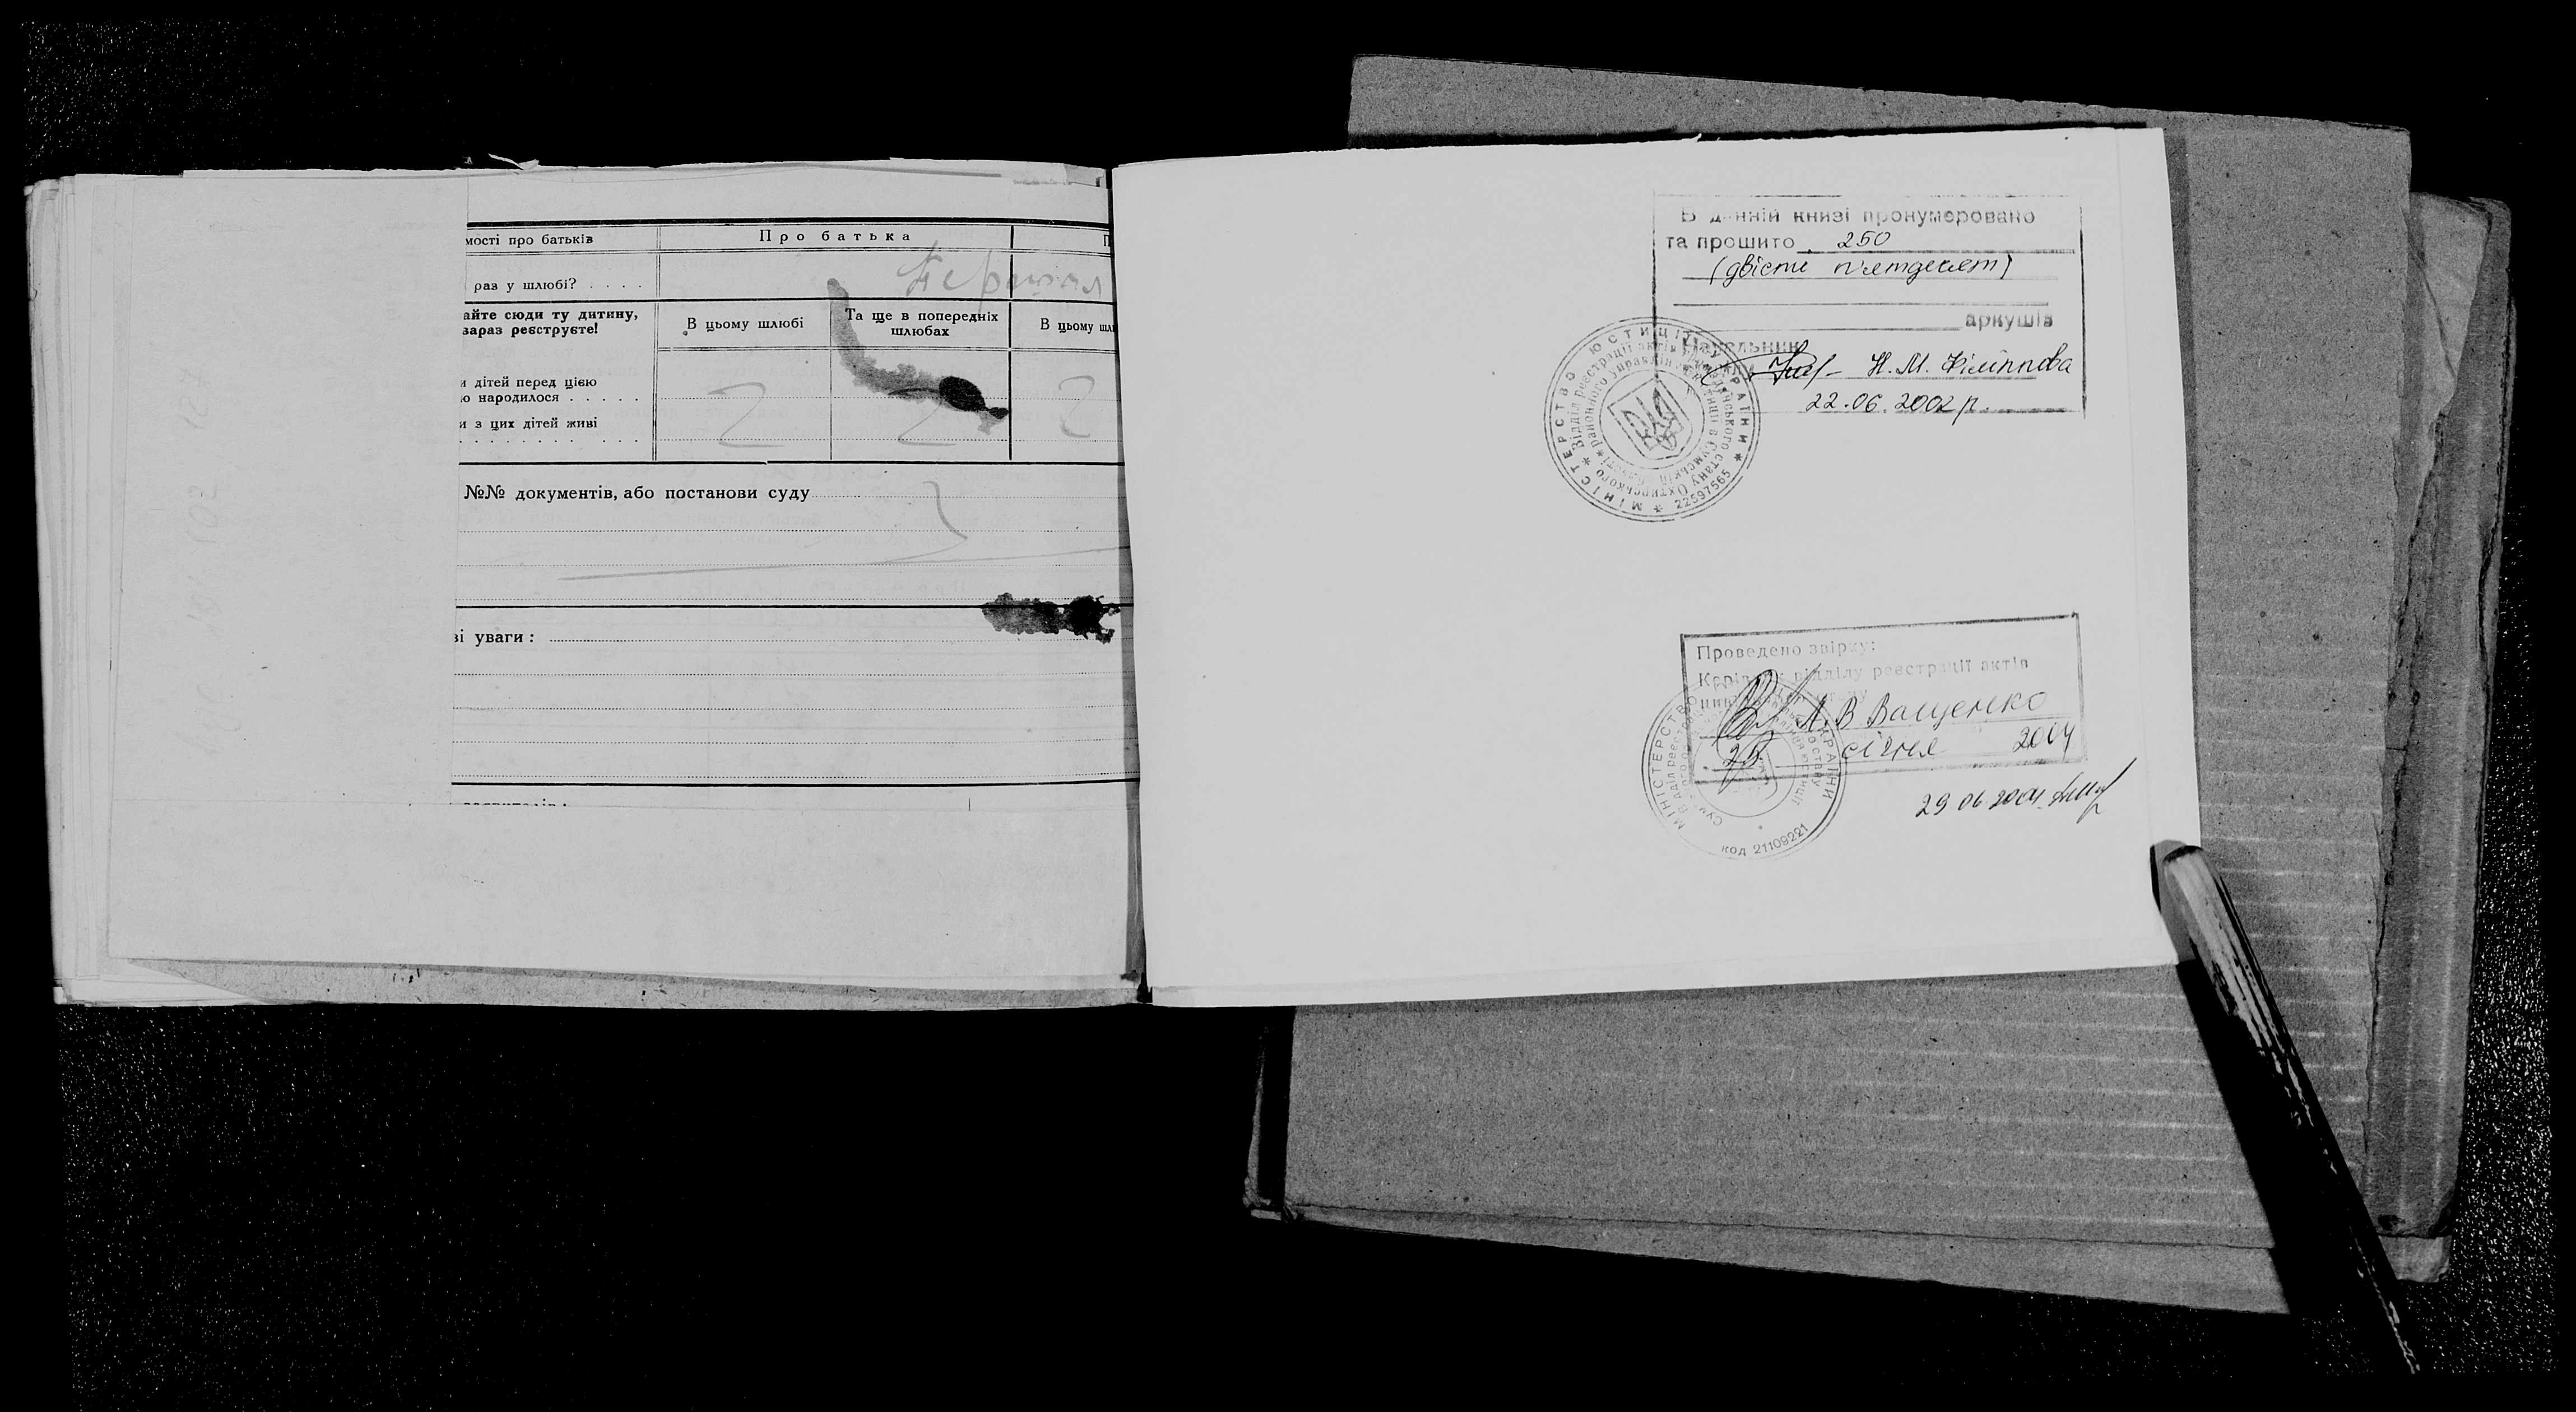 мості про батьків
Про батька
раз у шлюбі?
айте сюди ту дитину,
зараз реєструєте!
В цьому шлюбі
Та ще в попередніх
шлюбах
В цьому шл
и дітей перед цією
ю народилося
2 2 2
и з цих дітей живі
№№ документів, або постанови суду
ві уваги:
В данній книзі пронумеровано
та прошито 250
(двісті п'ятдесят)
аркушів
Начальник
Н.М. Філіппова
22.06.2002 р.
МІНІСТЕРСТВО ЮСТИЦІЇ УКРАЇНИ
Відділ реєстрації актів громадянського стану Охтирського
районного управління юстиції в Сумській області
22597565
Проведено звірку:
Керівник відділу реєстрації актів
Л.В Ващенко
січня 2004
МІНІСТЕРСТВО УКРАЇНИ
код 21109221
29 06 2004